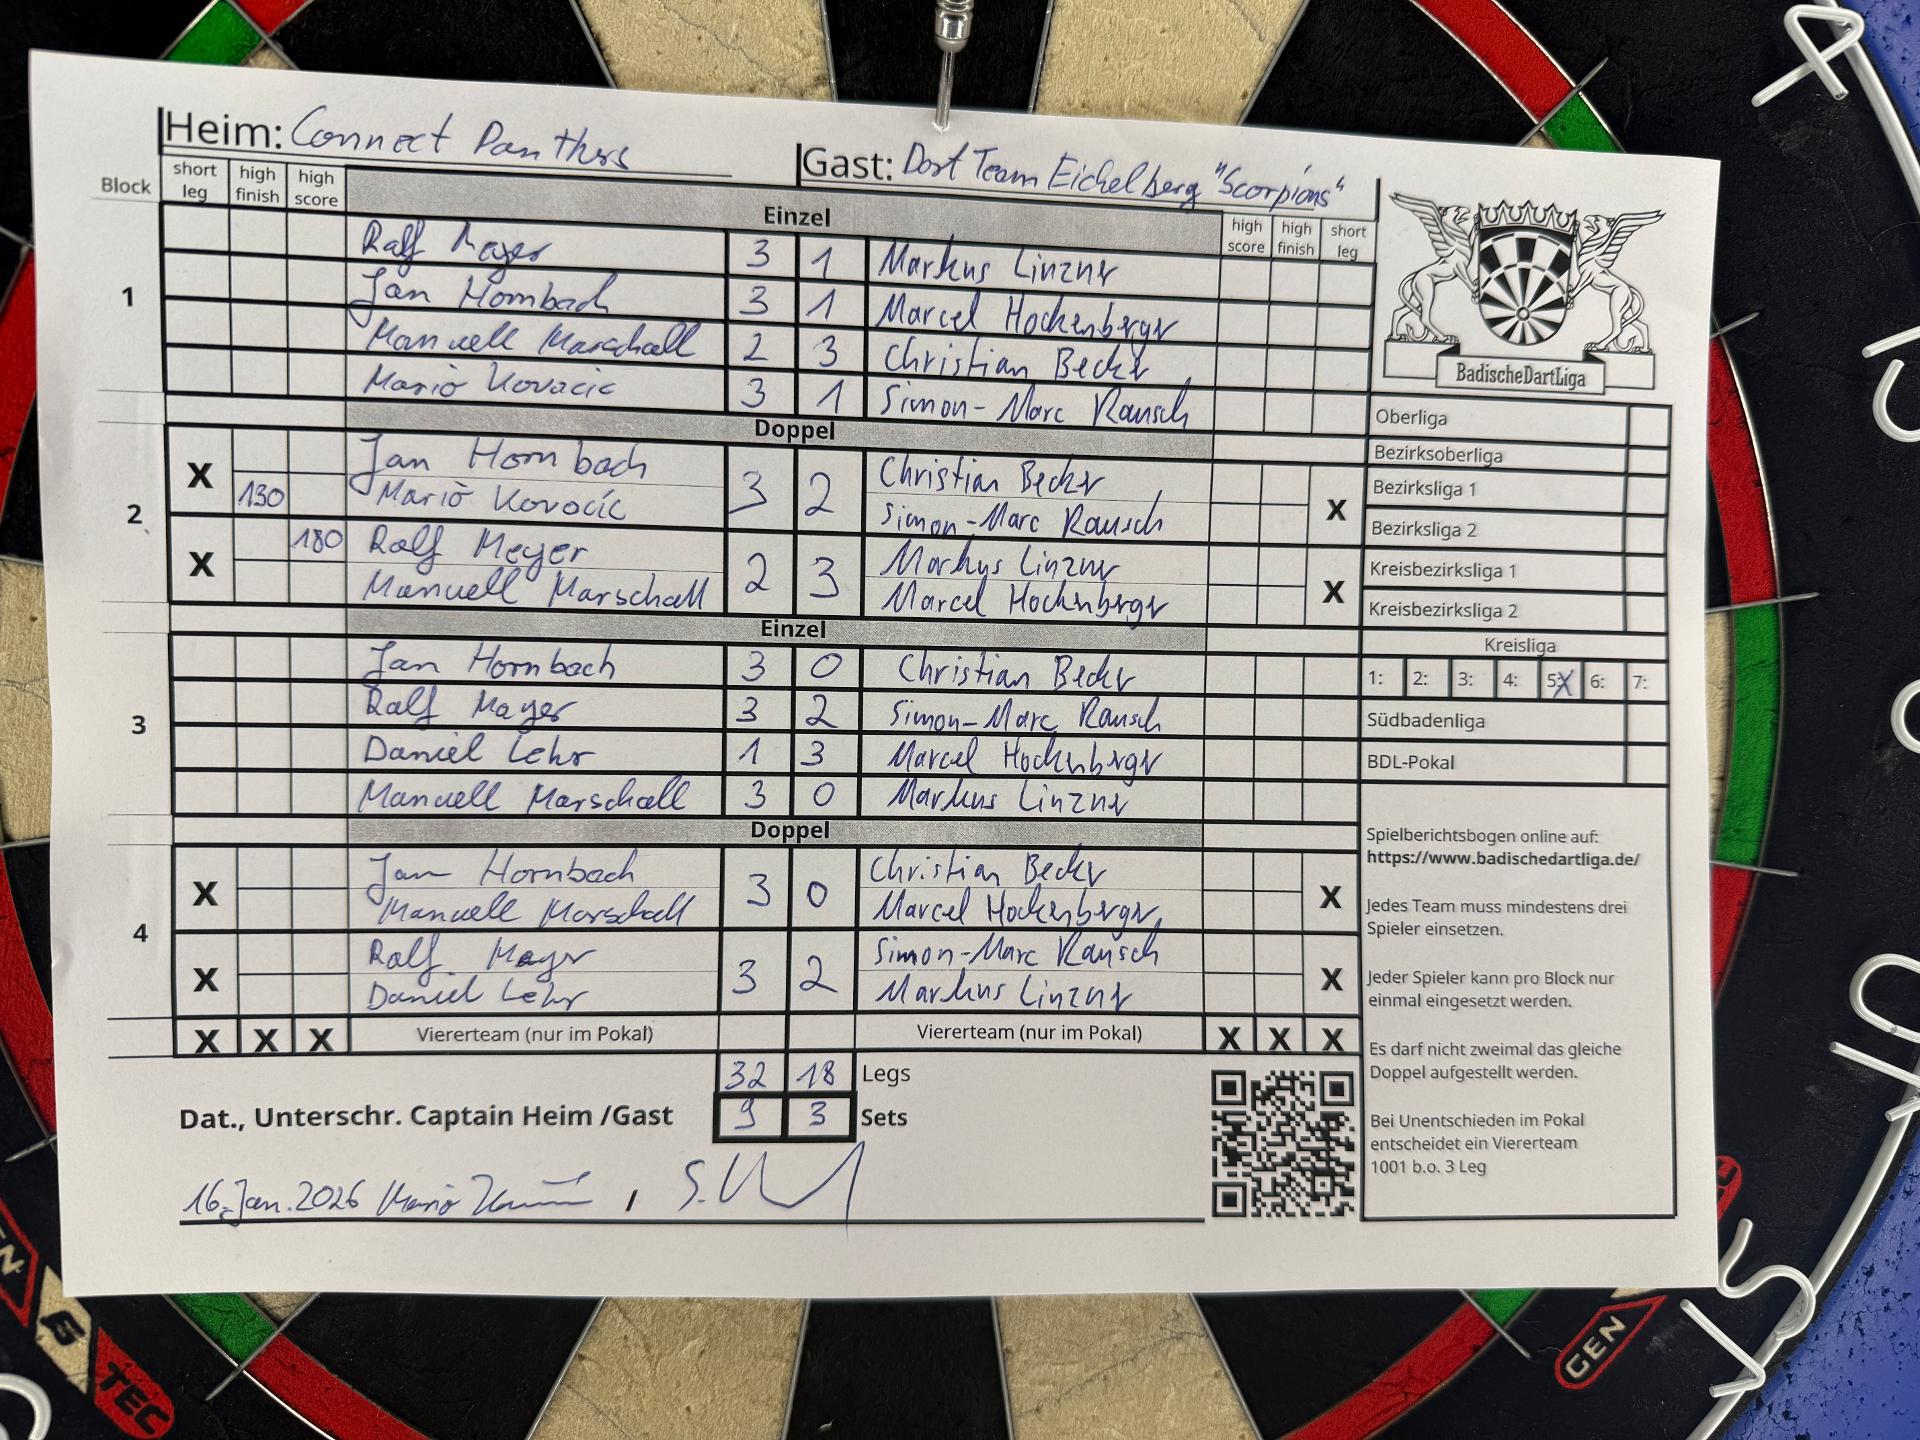 Heim: Connect Panthers
Gast: Dart Team Eichelberg "Scorpions"
Block short leg high finish high score Einzel high score high finish short leg
1
Ralf Mayer 3 1 Markus Linzner
Jan Hornbach 3 1 Marcel Hockenberger
Manuell Marschall 2 3 Christian Becker
Mario Kovacic 3 1 Simon-Marc Rausch
Doppel
2
X Jan Hornbach 3 2 Christian Becker X
130 Mario Kovacic Simon-Marc Rausch
X 180 Ralf Meyer 2 3 Markus Linzner X
Manuell Marschall Marcel Hockenberger
Einzel
3
Jan Hornbach 3 0 Christian Becker
Ralf Mayer 3 2 Simon-Marc Rausch
Daniel Lehr 1 3 Marcel Hockenberger
Manuell Marschall 3 0 Markus Linzner
Doppel
4
X Jan Hornbach 3 0 Christian Becker X
Manuell Marschall Marcel Hockenberger
X Ralf Mayer 3 2 Simon-Marc Rausch X
Daniel Lehr Markus Linzner
X X X Viererteam (nur im Pokal) Viererteam (nur im Pokal) X X X
32 18 Legs
Dat., Unterschr. Captain Heim /Gast 9 3 Sets
16. Jan. 2026 Mario /
BadischeDartLiga
Oberliga
Bezirksoberliga
Bezirksliga 1
Bezirksliga 2
Kreisbezirksliga 1
Kreisbezirksliga 2
Kreisliga
1: 2: 3: 4: 5: X 6: 7:
Südbadenliga
BDL-Pokal
Spielberichtsbogen online auf:
https://www.badischedartliga.de/
Jedes Team muss mindestens drei
Spieler einsetzen.
Jeder Spieler kann pro Block nur
einmal eingesetzt werden.
Es darf nicht zweimal das gleiche
Doppel aufgestellt werden.
Bei Unentschieden im Pokal
entscheidet ein Viererteam
1001 b.o. 3 Leg
TEC
GEN